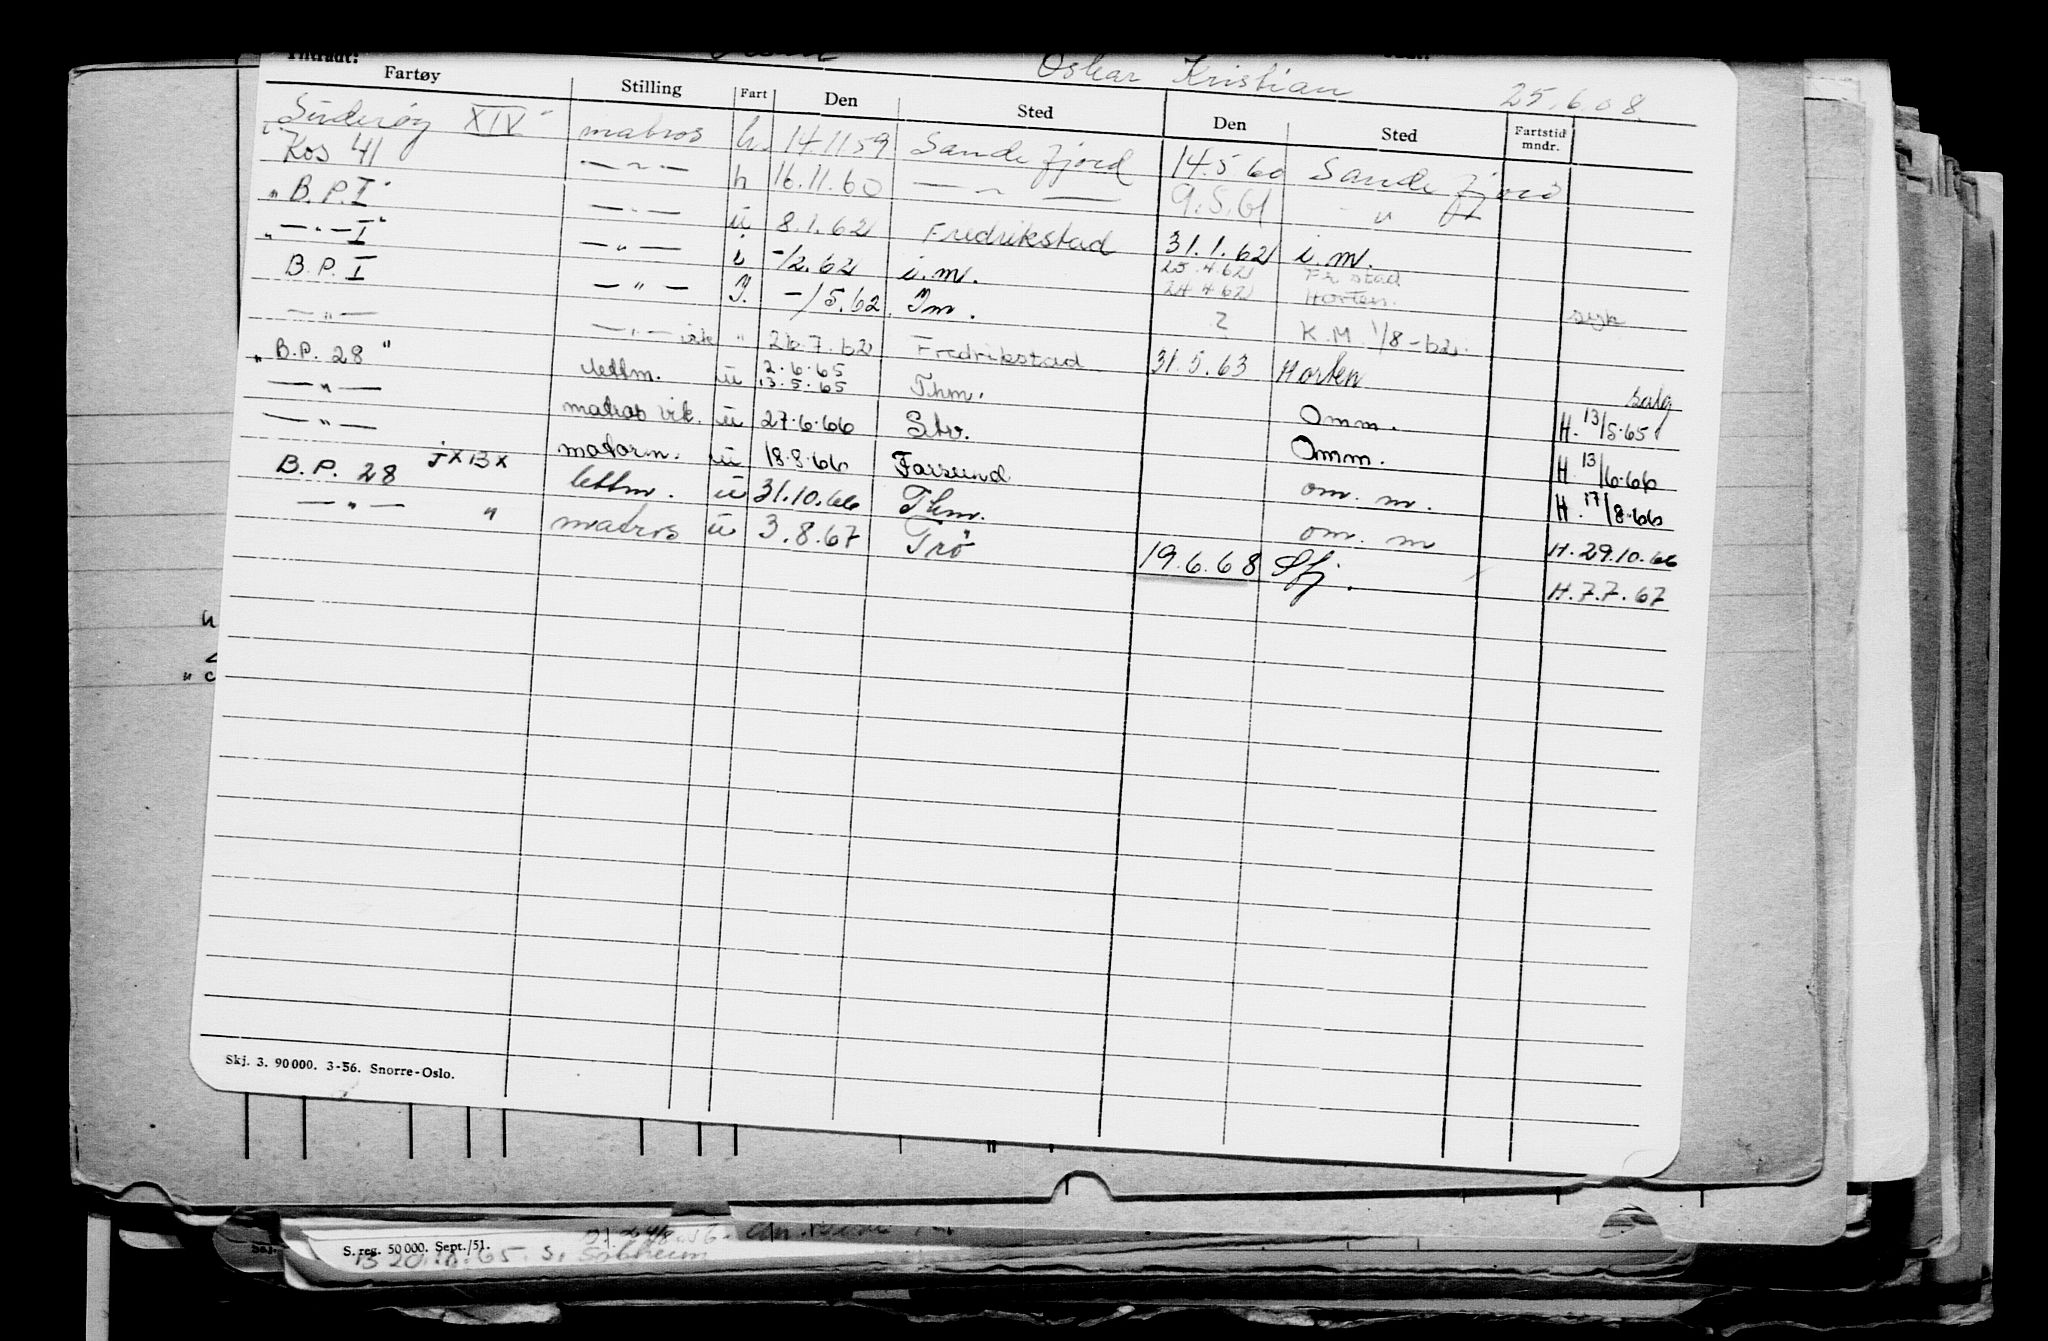 Oskar Kristian 25.6.08.
Fartøy Stilling Fart Den Sted Den Sted Fartstid mndr.
"Suderøy XIV" matros h. 14.11.59 Sandefjord 14.5.60 Sandefjord
Kos 41 — " — h 16.11.60 — " — 9.5.61 "
"B.P.I" — " — u 8.1.62 Fredrikstad 31.1.62 i.m.
"— " — I" — " — i -/2.62 i.m. 25.4.62 Fr.stad
24.4.62 Horten.
B.P.I — " — I. -/5.62. Im. ? K.M. 1/8-62. syk
— " — — " — " 26.7.62 Fredrikstad 31.5.63 Horten salg
"B.P. 28" lettm. u 2.6.65 13.5.65 Thm. Omm. H. 13/5.65
— " — matros vik. u 27.6.66 Stv. Omm. H. 13/6.66
— " — motorm. u 18.8.66 Farsund om. m. H. 17/8.66
B.P. 28 JXBX lettm. u 31.10.66 Thm. om. m H. 29.10.66
— " — " matros u 3.8.67 Trö 19.6.68 Sfj. H. 7.7.67
Skj. 3. 90000. 3-56. Snorre-Oslo.
S. reg. 50 000. Sept./51.